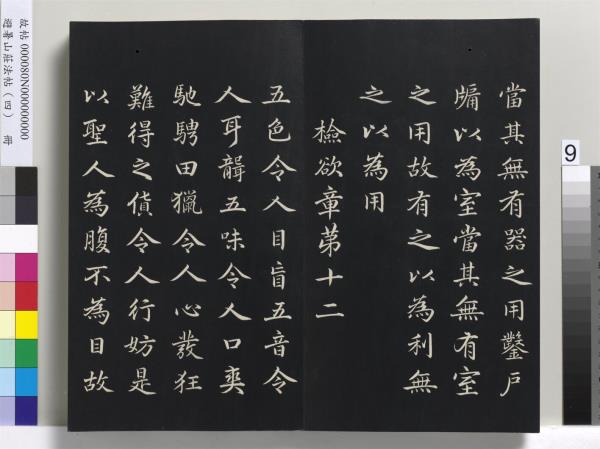 當其無有器之用鑿戶
牖以為室當其無有室
之用故有之以為利無
之以為用
檢欲章苐十二
五色令人目盲五音令
人耳聾五味令人口爽
馳騁田獵令人心發狂
難得之貨令人行妨是
以聖人為腹不為目故
故帖 000080N000000000
避暑山莊法帖（四） 冊
9